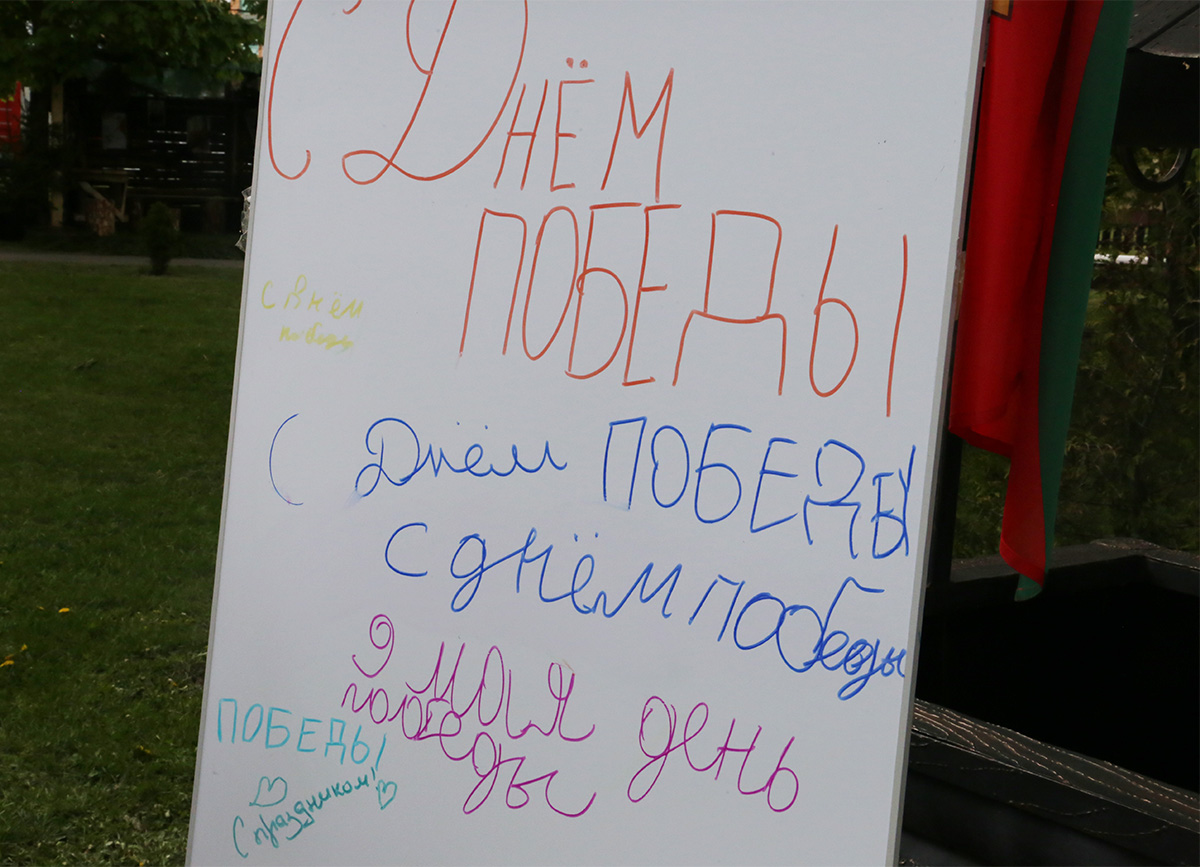 С Днём
ПОБЕДЫ
С Днём
победы
С Днём ПОБЕДЫ
С днём победы
9 мая день
победы
ПОБЕДЫ
С праздником!